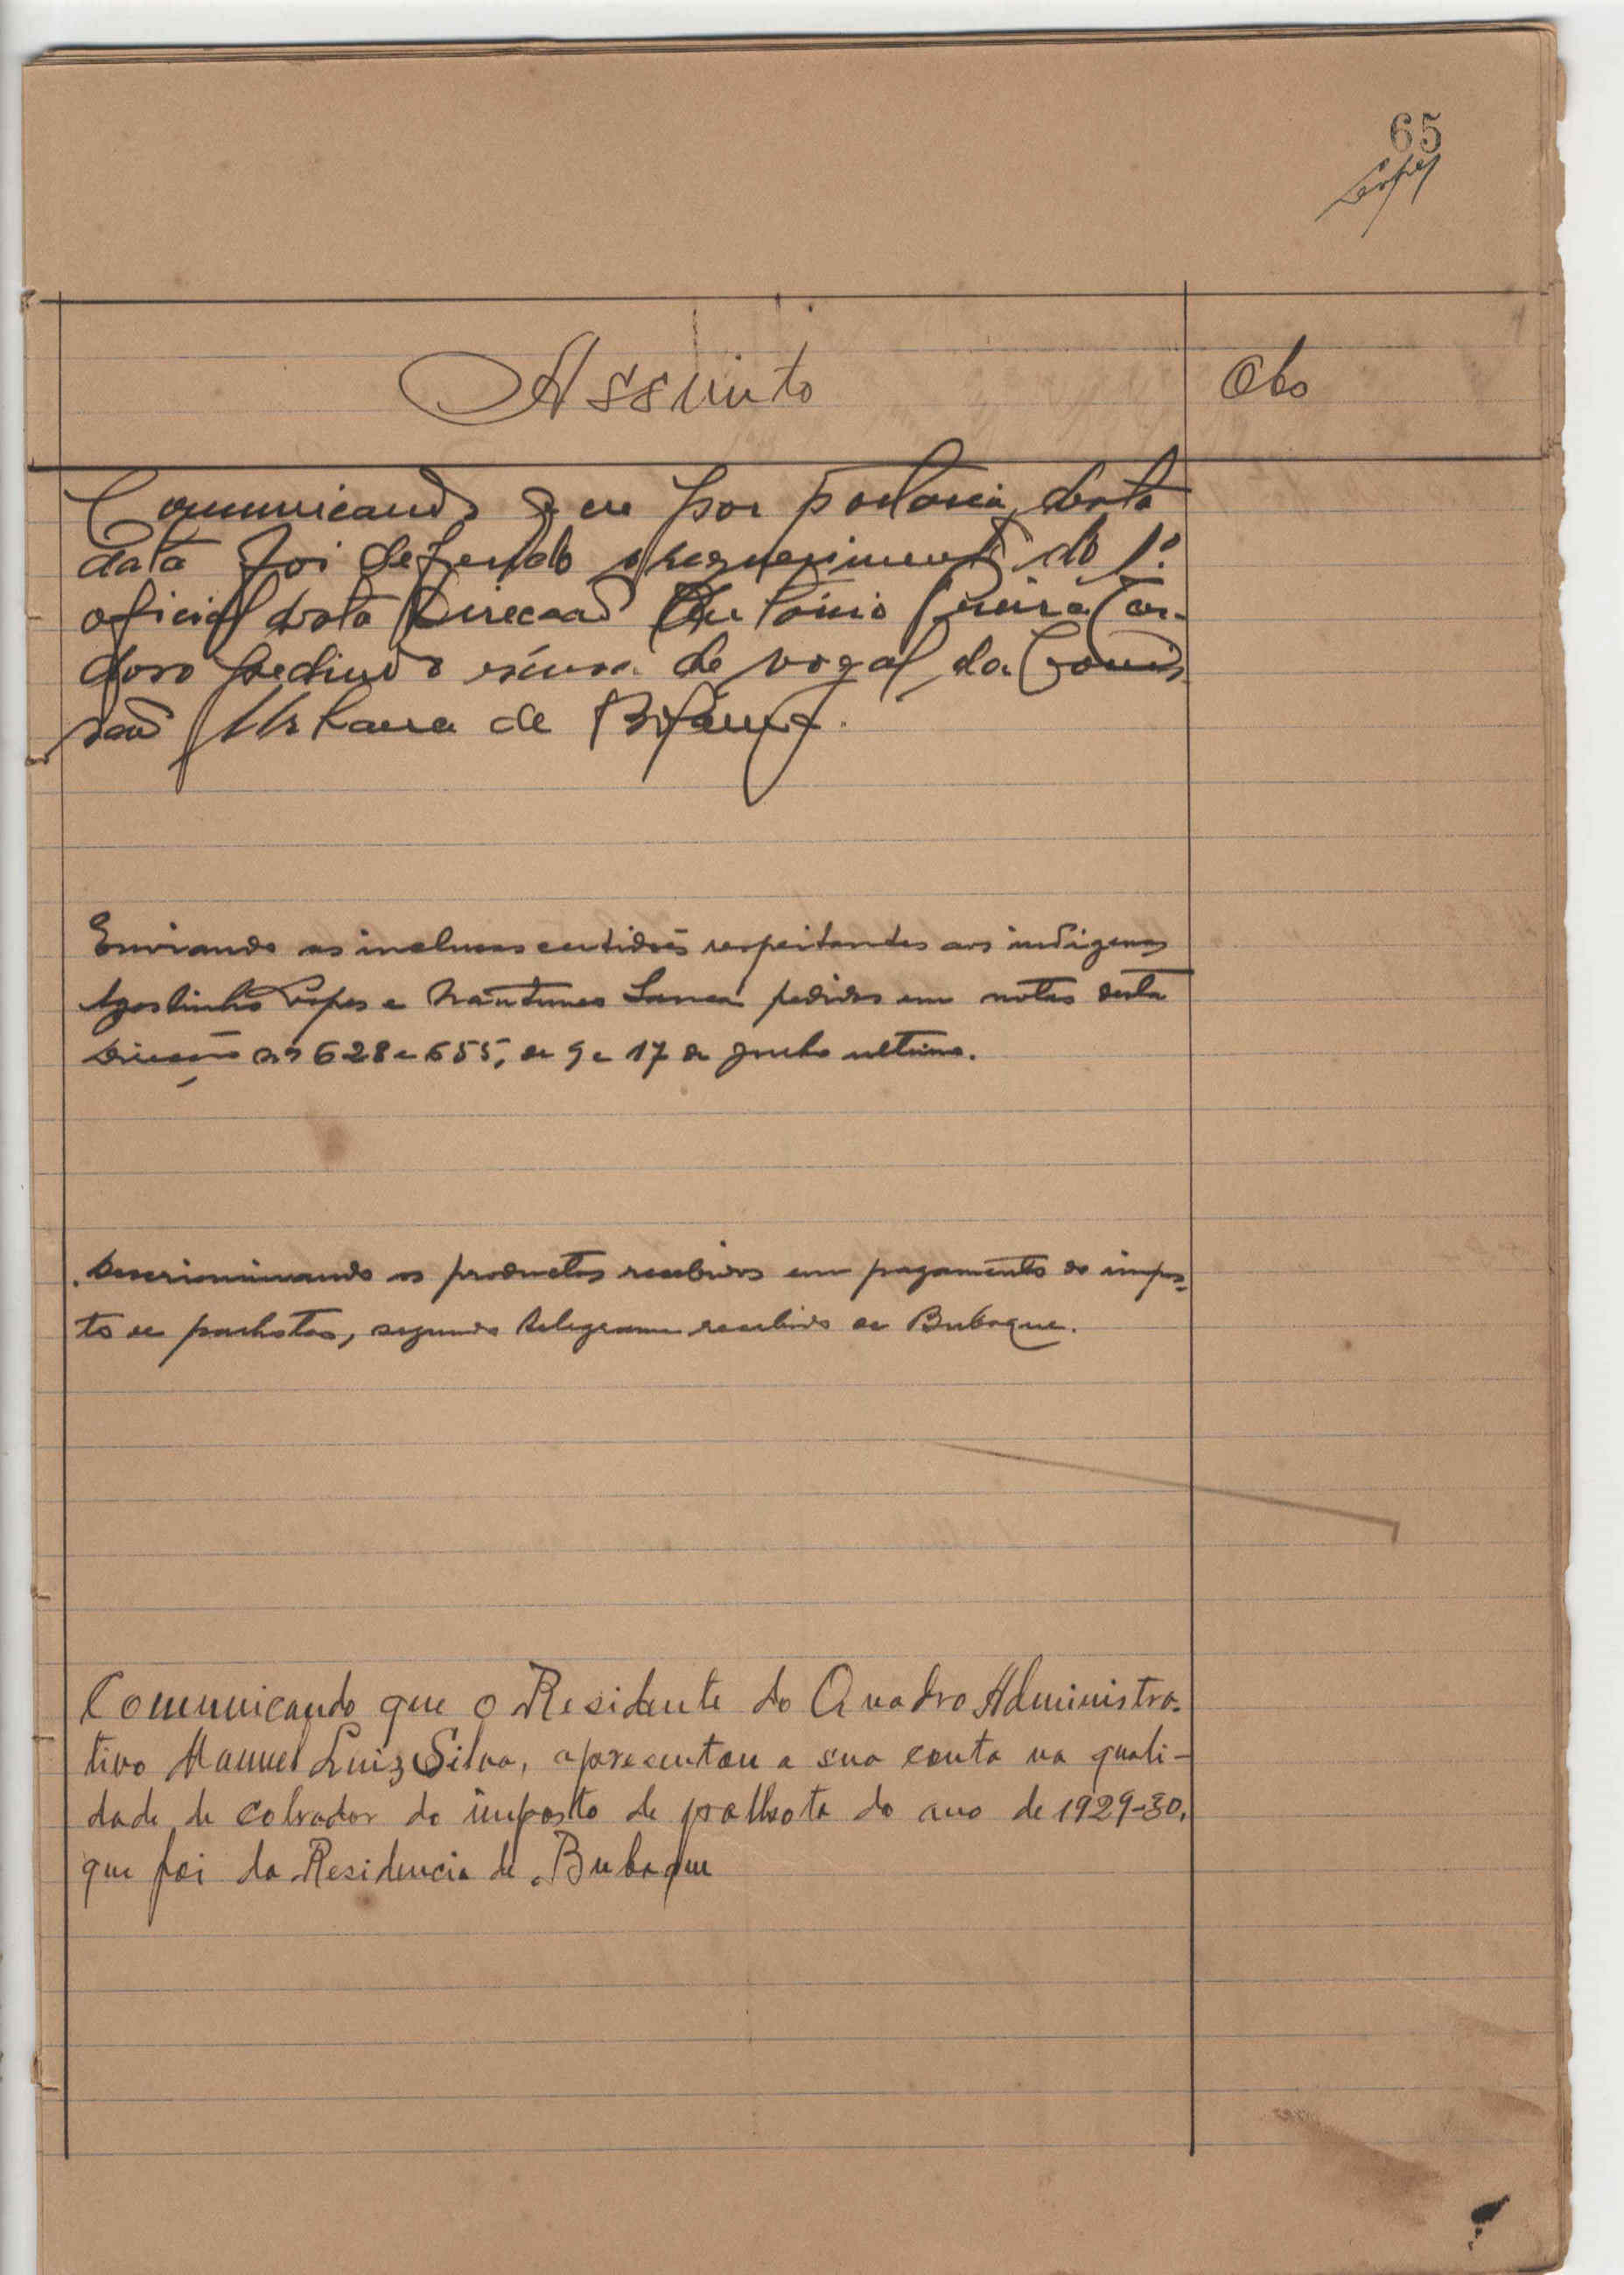 65
Lopes
Assunto
Obs
Comunicando que por portaria desta
data foi deferido o requerimento do 1.º
oficial desta Direcção António Pereira Car-
doso pedindo escusa de vogal da Comis
são Urbana de Bissau.
Enviando as inclusas certidões respeitantes aos indigenas
Agostinho Lopes e pedidas em notas desta
Direcção nºs 628 e 655, de 9 e 17 de Junho ultimo.
Descriminando os productos recebidos em pagamento do impos-
to de palhotas, segundo telegrama recebido de Bubaque.
Comunicando que o Residente do Quadro Administra-
tivo Manuel Luiz Silva, apresentou a sua conta na quali-
dade de cobrador do imposto de palhota do ano de 1929-30,
que foi da Residencia de Bubaque